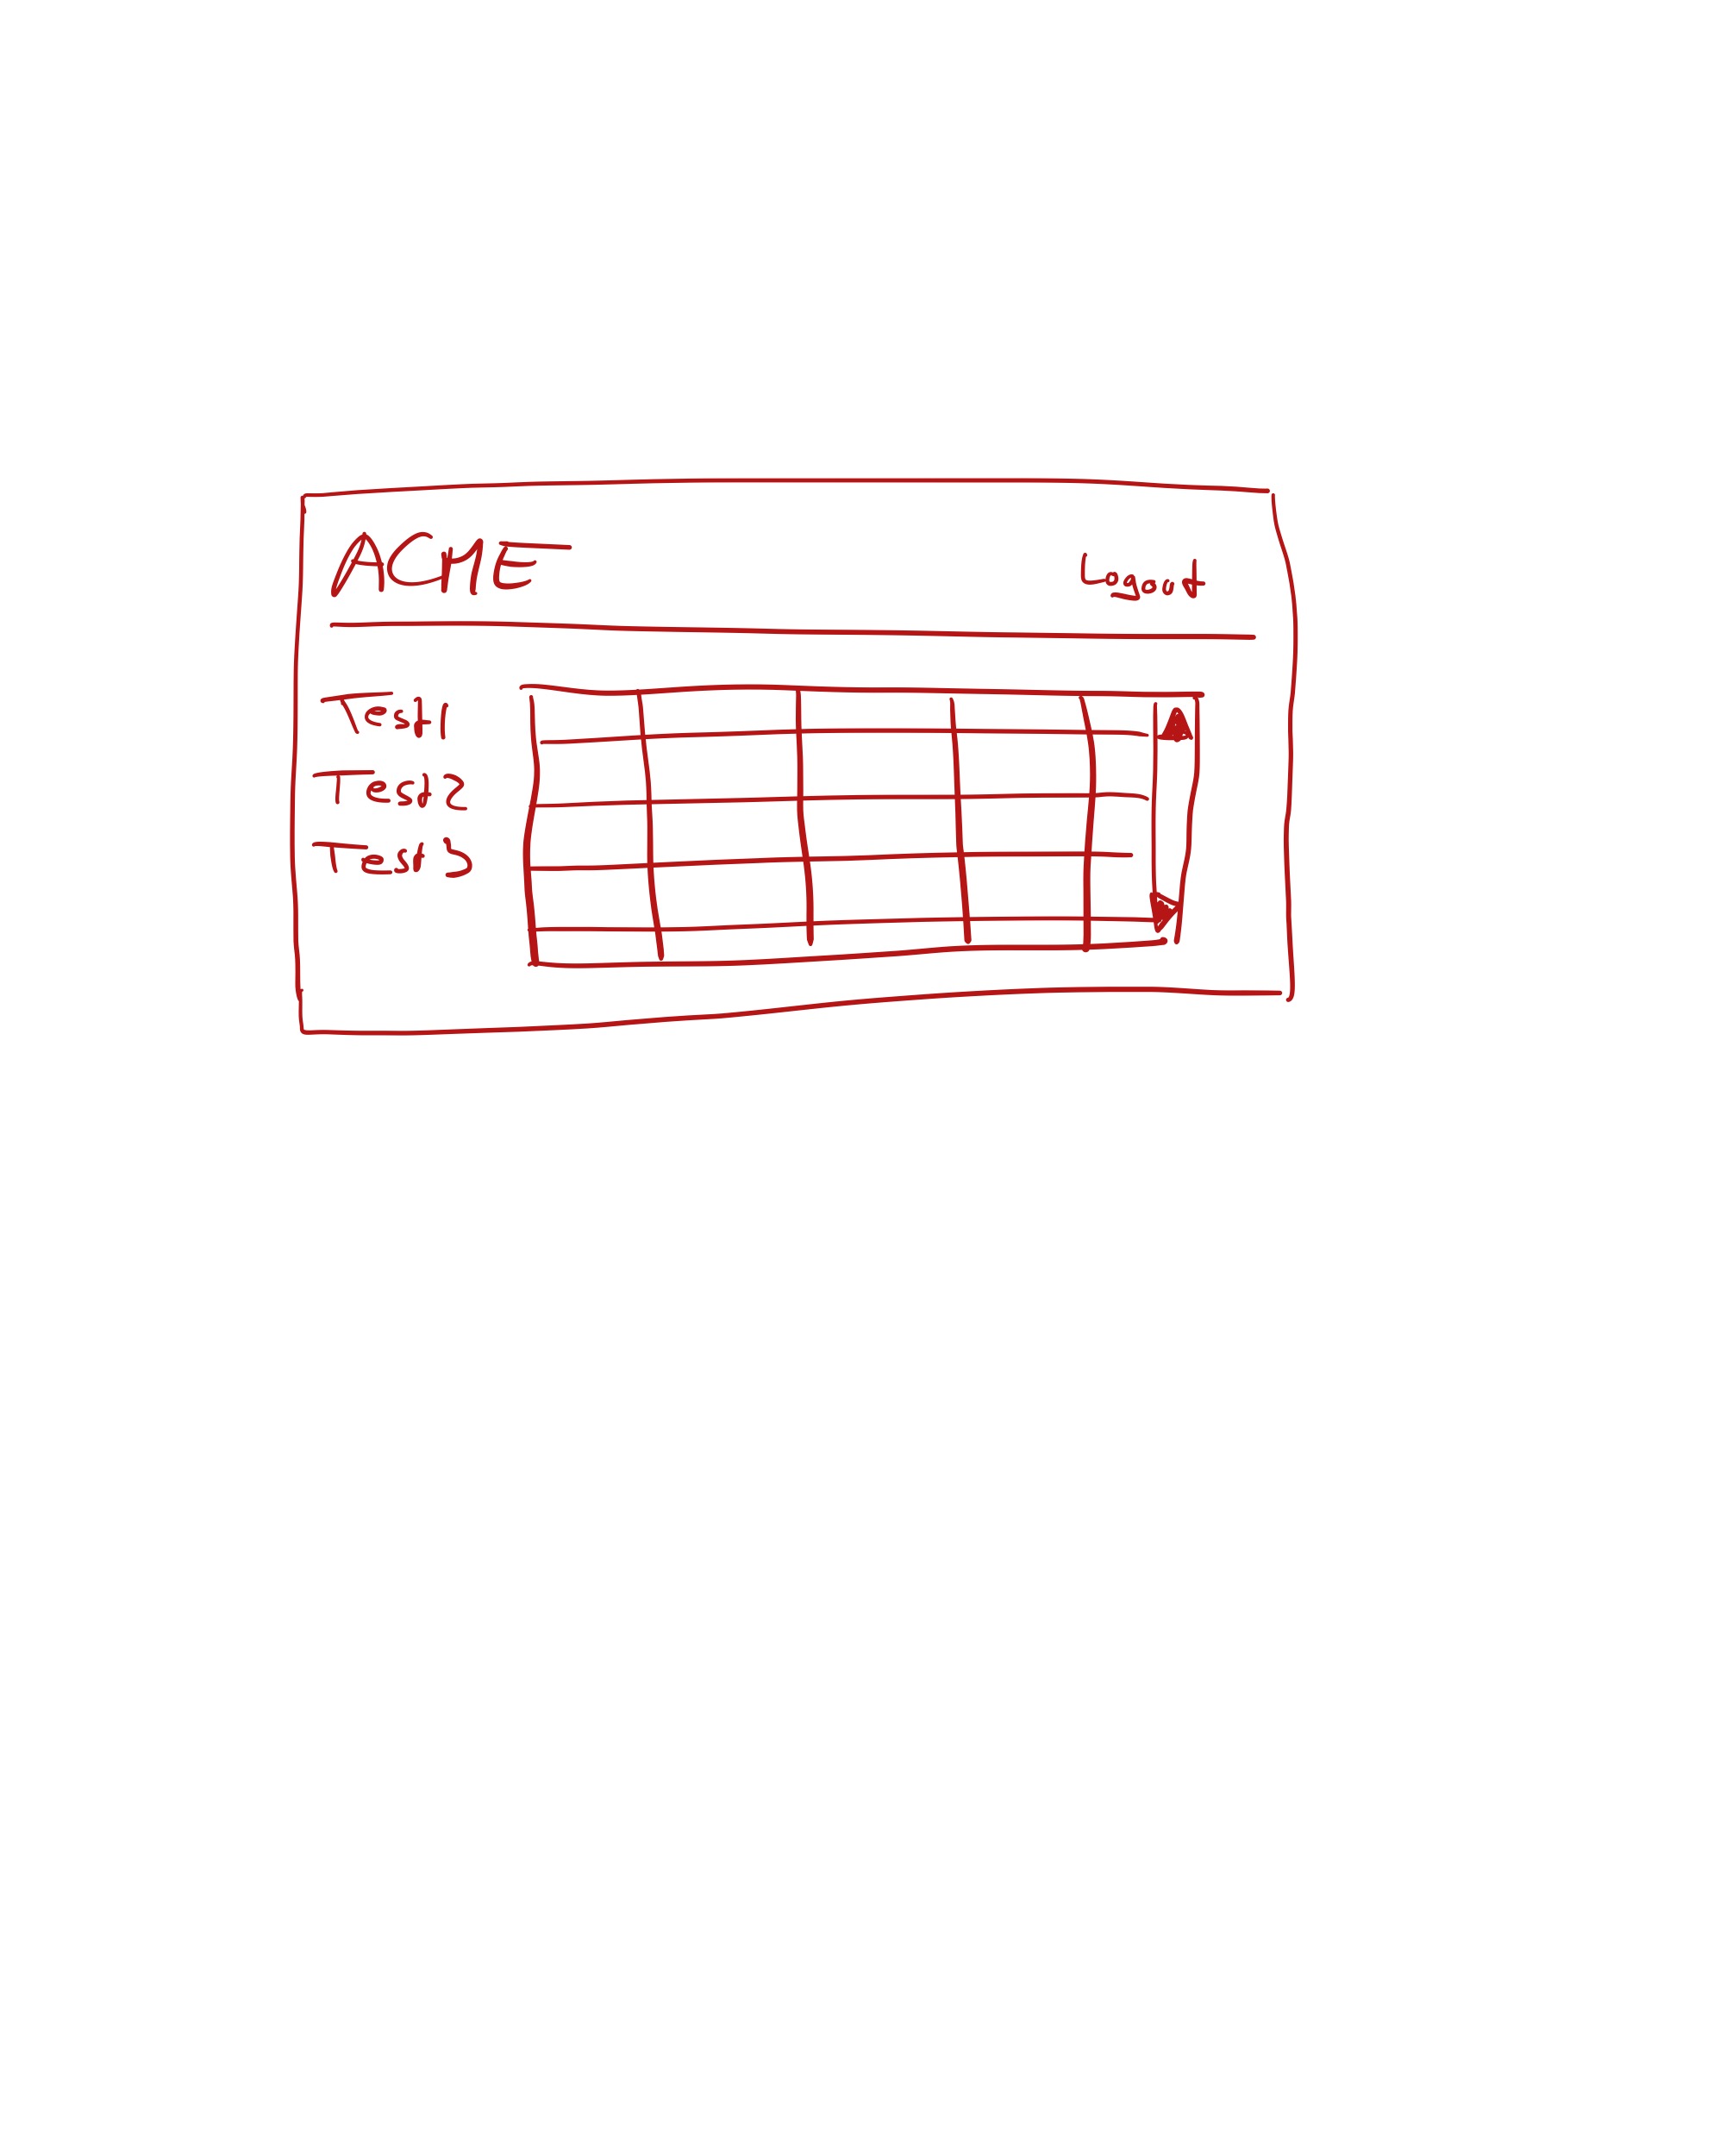 ACME
Logout
Test 1
Test 2
Test 3